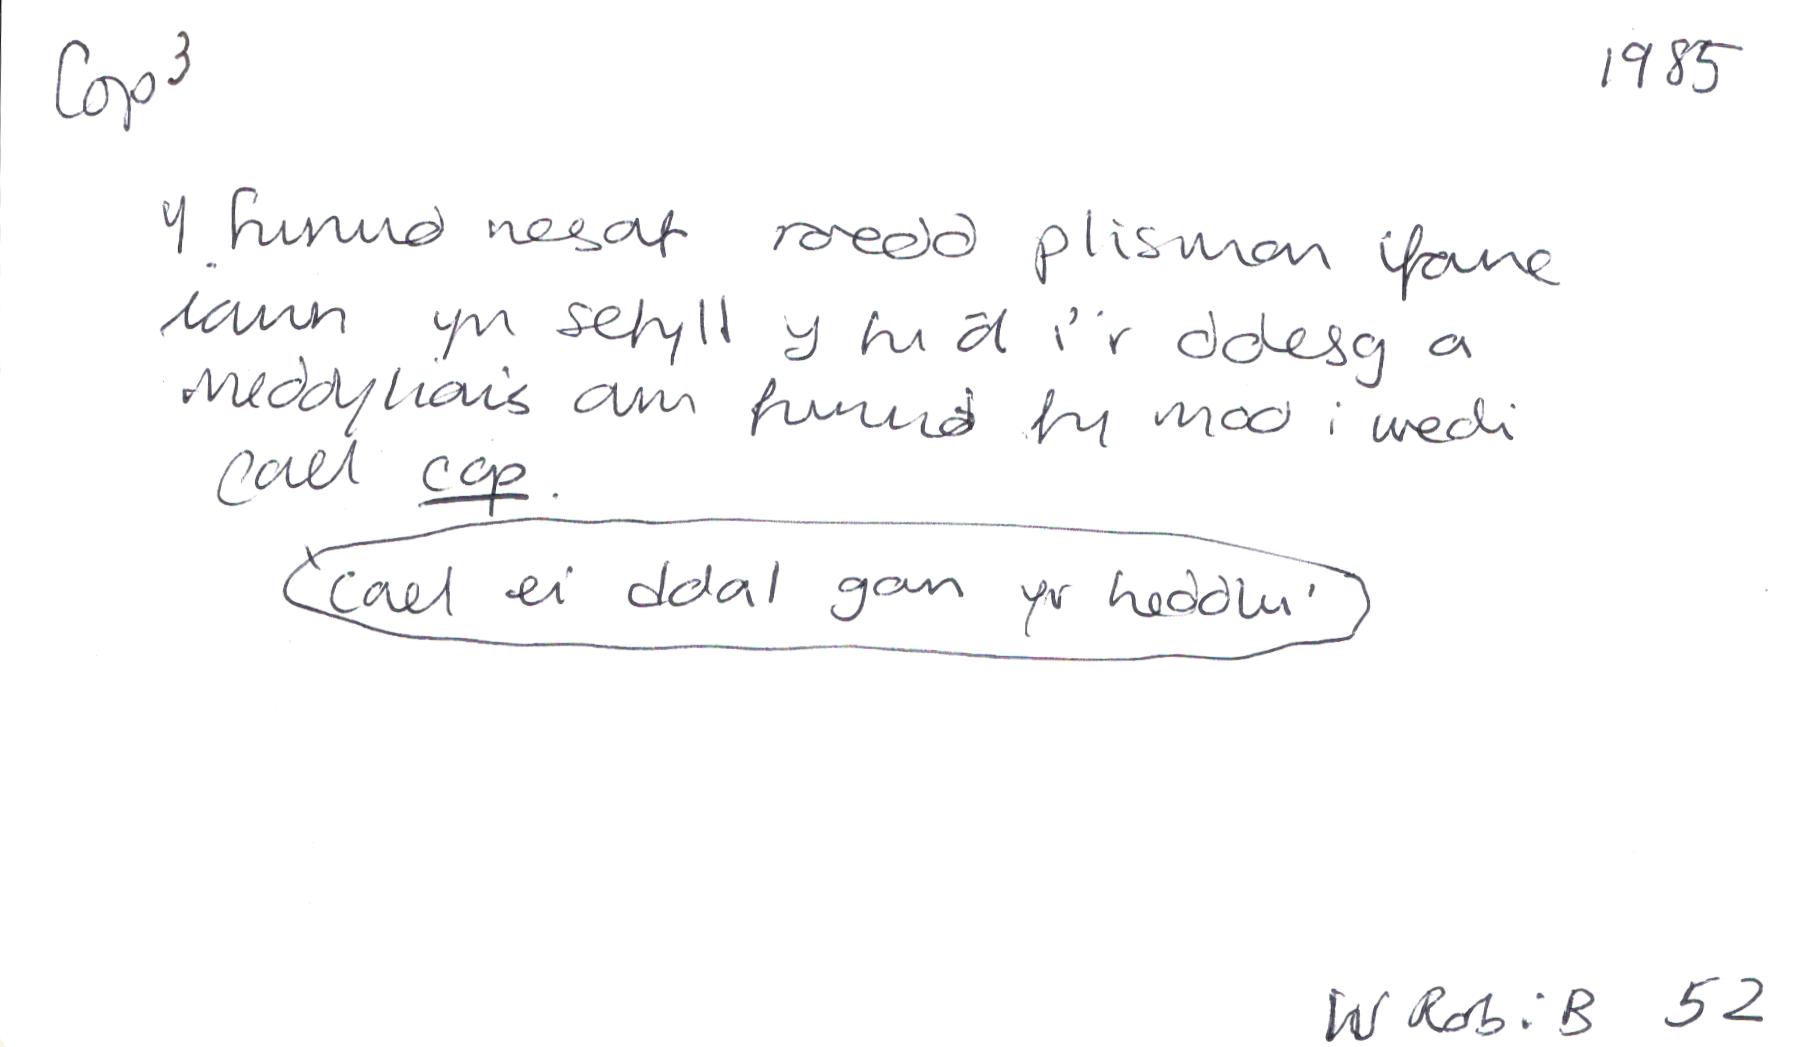 Cop³ 1985
y funud nesaf roedd plismon ifanc
iawn yn sefyll y tu ôl i'r ddesg a
meddyliais am funud fy mod i wedi
cael cop.
'cael ei ddal gan yr heddlu'
W Rob: B 52